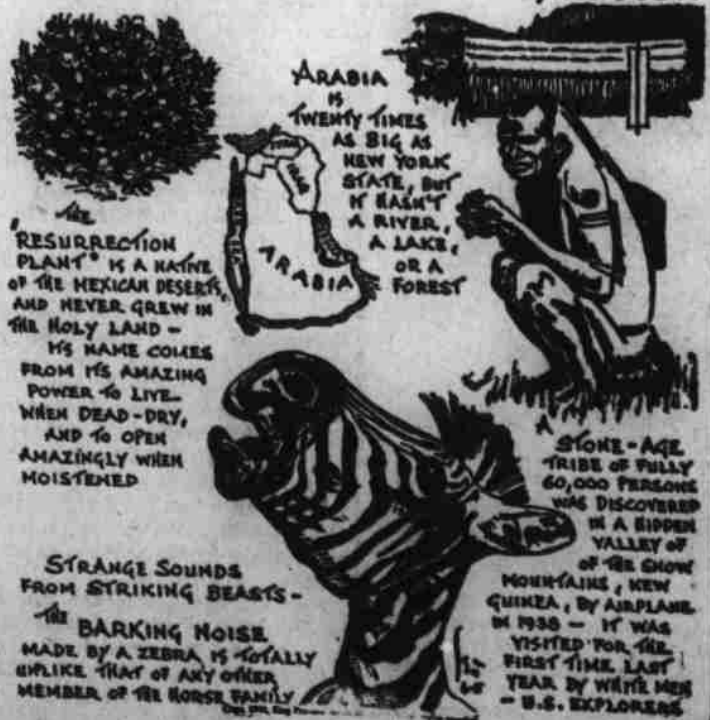 ARABIA
IS
TWENTY TIMES
AS BIG AS
NEW YORK
STATE, BUT
IT HASN'T
A RIVER,
A LAKE,
OR A
FOREST
IRAQ
ARABIA
THE
"RESURRECTION
PLANT" IS A NATIVE
OF THE MEXICAN DESERTS,
AND NEVER GREW IN
THE HOLY LAND –
ITS NAME COMES
FROM ITS AMAZING
POWER TO LIVE
WHEN DEAD-DRY,
AND TO OPEN
AMAZINGLY WHEN
MOISTENED
A
STONE-AGE
TRIBE OF FULLY
60,000 PERSONS
WAS DISCOVERED
IN A HIDDEN
VALLEY OF
OF THE SNOW
MOUNTAINS, NEW
GUINEA, BY AIRPLANE
IN 1938 – IT WAS
VISITED FOR THE
FIRST TIME LAST
YEAR BY WHITE MEN
– U.S. EXPLORERS
STRANGE SOUNDS
FROM STRIKING BEASTS –
THE
BARKING NOISE
MADE BY A ZEBRA IS TOTALLY
UNLIKE THAT OF ANY OTHER
MEMBER OF THE HORSE FAMILY